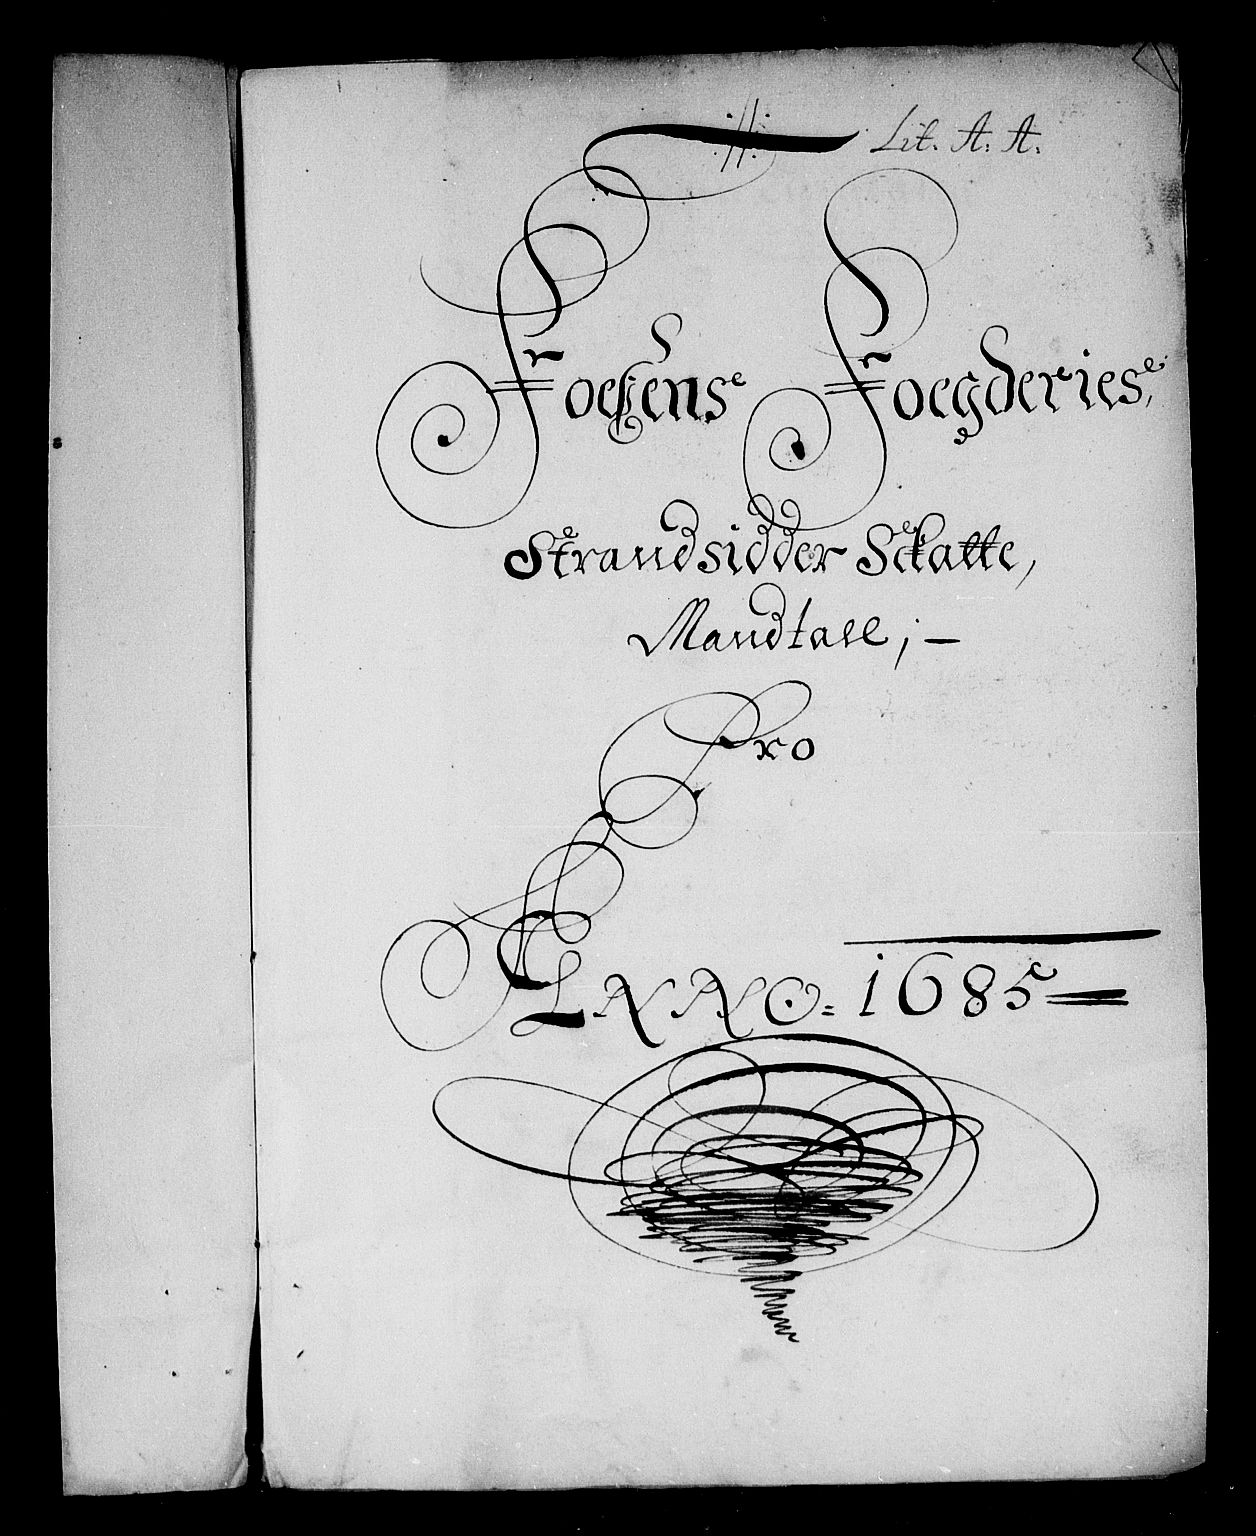 Lit. A. A.
Foesens Foegderies,
Strandsidder Sckatte,
Mandtall ; —
Pro
ANNO. 1685